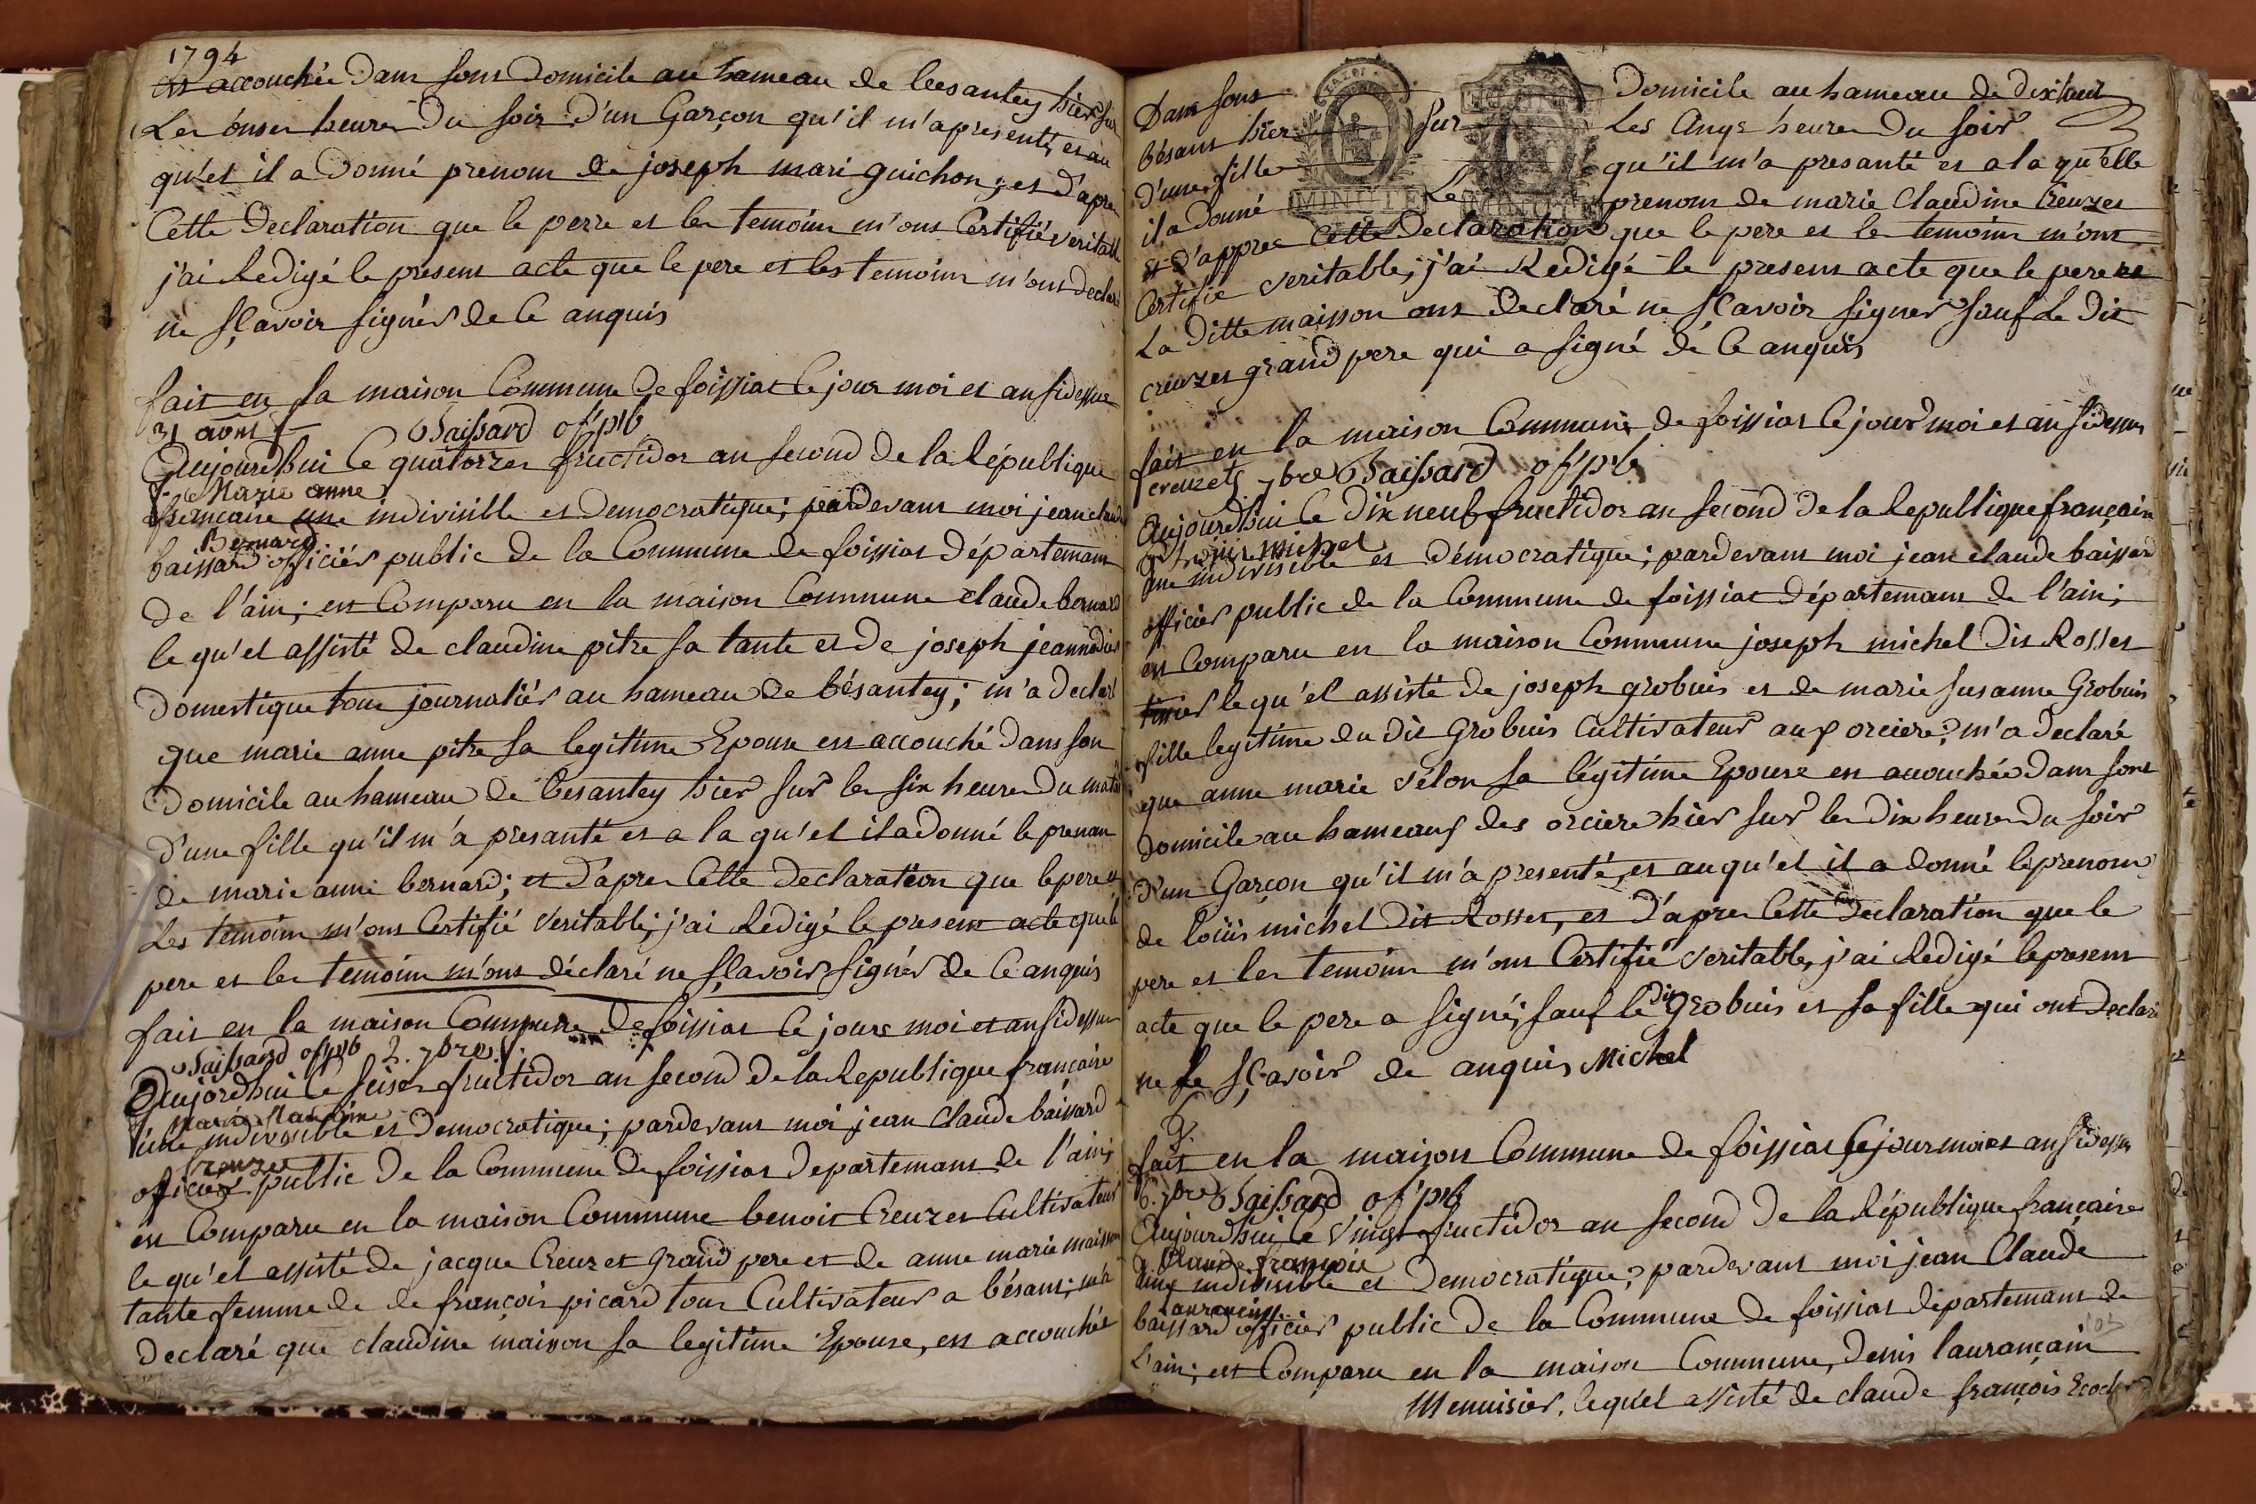 1794
est accouchée Dans sons Domicile au hameau de besantey hier sur
Les ônser heures Du soir D'un Garçon qu'il m'apresenté, et au
qu'el il a Donné prenom de joseph mari guichon; et d'apres
Cette Declaration que le perre et les temoins m'ont Certifié veritable
j'ai Redigé le present acte que le pere et les temoins m'ont declaré
ne sçavoir signér de Ce anquis
fait en la maison Commune de foissiat le jour moi et an sidessue
31 aout Baissard of pb
Aujourdhui le quatorzer fructidor an second de la République
Marie anne
francaise une indivisible et Democratique; pardevant moi jean claude
Bernard
baissard officiér public de la Commune de foissiat départemant
de l'ain; est Comparu en la maison Commune claude bernard
le qu'el assisté de claudine pitre sa tante et de joseph jeannodin
domestique tous journaliér au hameau de bésantey; m'a declaré
que marie anne pitre sa legitime Epouse est accouché dans son
domicile au hameau de besantey hier sur les six heures Du matin
d'une fille qu'il m'a presanté et a la qu'el il a donné le prenom
de marie anne bernard; et D'apres Cette declaration que le pere et
Les temoins m'ont Certifié veritable; j'ai Redigé le present acte que le
pere et les temoins m'ont déclaré ne sçavoir signér de Ce anquis
fait en la maison Commune de foissiat le jour moi et an sidessue
Baissard of pb 2. 7bre
Aujordhui le seiser fructidor an second de la Republique française
Marie Claudine
une indivisible et Democratique; pardevant moi jean claude baissard
Creuzet
officier public de la Commune de foissiat departemant de l'ain;
est Comparu en la maison Commune benoit Creuzet Cultivateur
le qu'el assisté de jacque Creuzet grand pere et de anne marie maisson
tante femme de de françois picard tous Cultivateur a bésant; m'a
declaré que claudine maison sa legitime Epouse, est accouchée
Dans sons Domicile au hameau de dexheur
bésant hier sur Les Onze heures Du soir
d'une fille qu'il m'a presanté et a la qu'elle
il a donné Le prenom de marie Claudine Creuzet
MINUTE
et d'appree Cette Declaration que le pere et les temoins m'ont
Certifie veritable; j'ai Redigé le present acte que le pere et
La ditte maisson ont declaré ne sçavoir signer sauf Le dit
creuzet grand pere qui a signé de Ce anquis
fait en la maison Commune de foissiat le jour moi et an sidessus
creuzet 7bre Baissard of pb
Aujourdhui le dix neuf fructidor an second de la Republique françaire
Louis michel
une indivisible et démocratique; pardevant moi jean claude baissard
officier public de la Commune de foissiat départemant de l'ain;
est Comparu en la maison Commune joseph michel dit Rosset
tissier le qu'el assisté de joseph grobuis et de marie susanne Grobuis
fille legitime du dit grobuis Cultivateur aux orciere; m'a declaré
que anne marie vélon sa légitime Epouse est accouchée dans sont
domicile au hameaux des orciere hier sur les dix heures du soir
d'un Garçon qu'il m'a presenté, et au qu'el il a donné le prenom
de loüis michel dit Rosset, et d'apres Cette declaration que le
pere et les temoins m'ont Certifié veritable, j'ai Redigé le present
acte que le pere a signé, sauf le dit grobuis et sa fille qui ont declaré
ne le sçavoir de anquis Michel
fait en la maison Commune de foissiat le jour moi et an sidessus
6. 7bre Baissard of pb
Aujourdhui le vingt fructidor an second de la République française
Claude françois
une indivisible et Democratique; pardevant moi jean Claude
laurançin
baissard officier public de la Commune de foissiat départemant de
L'ain; est Comparu en la maison Commune, Denis laurançain
Menuisier, le quel assisté de claude françois Ecochard